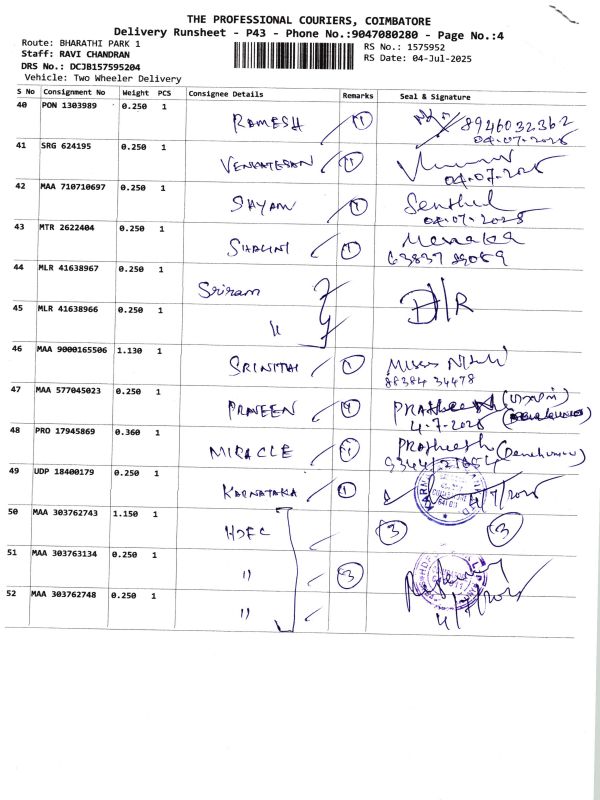 THE PROFESSIONAL COURIERS, COIMBATORE
Delivery Runsheet - P43 - Phone No.:9047080280 - Page No.:4
Route: BHARATHI PARK 1
Staff: RAVI CHANDRAN
DRS No.: DCJB157595204
Vehicle: Two Wheeler Delivery
RS No.: 1575952
RS Date: 04-Jul-2025
S No Consignment No Weight PCS Consignee Details Remarks Seal & Signature
40 PON 1303989 0.250 1 RAMESH 1 8946032362
04.07.2025
41 SRG 624195 0.250 1 VENKATESAN 1
04.07.2025
42 MAA 710710697 0.250 1 SHYAM 1 Senthil
04.07.2025
43 MTR 2622404 0.250 1 SHALINI 1 Menaka
63837 89089
44 MLR 41638967 0.250 1 Sriram D/R
45 MLR 41638966 0.250 1 "
46 MAA 9000165506 1.130 1 SRINITHI 1 Misses
88384 34478
47 MAA 577045023 0.250 1 PRAVEEN 1 PRATheesh
4-7-2025
48 PRO 17945869 0.360 1 MIRACLE 1 PRatheesh
49 UDP 18400179 0.250 1 KARNATAKA 1 4/7/2025
50 MAA 303762743 1.150 1 HDFC 3 3
51 MAA 303763134 0.250 1 " 3
52 MAA 303762748 0.250 1 " 4/7/2025